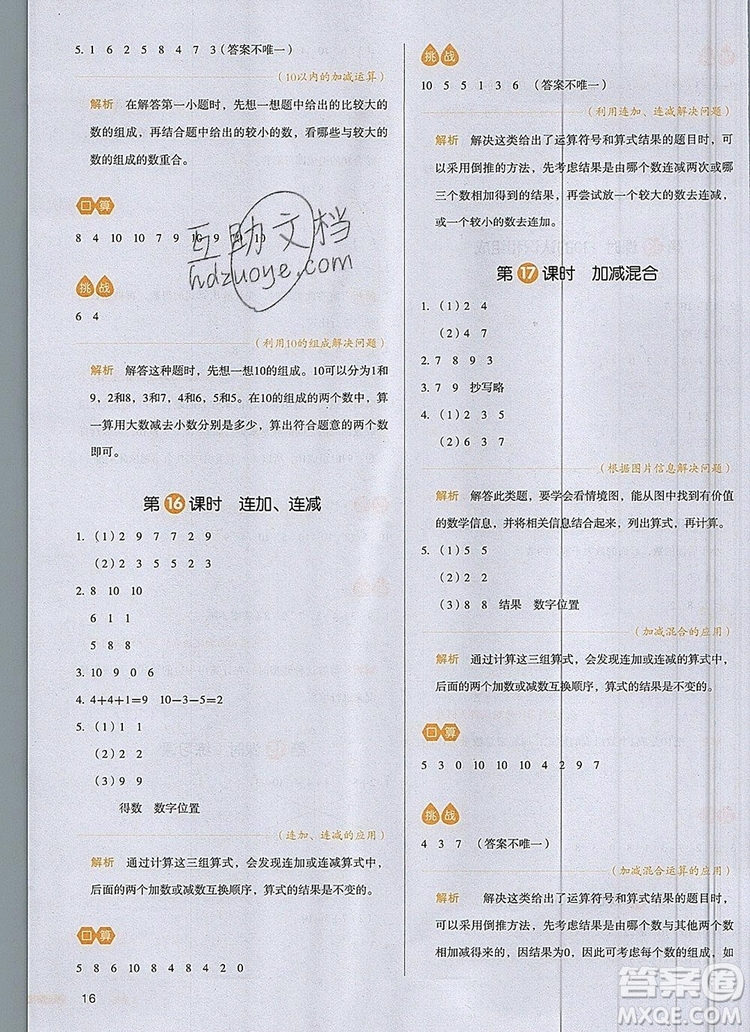 5. 1 6 2 5 8 4 7 3（答案不唯一）
（10以内的加减运算）
解析 在解答第一小题时，先想一想题中给出的比较大的
数的组成，再结合题中给出的较小的数，看哪些与较大
的数的组成的数重合。
口算
8 4 10 9 7 9 10 9 9 10
挑战
6 4
（利用10的组成解决问题）
解析 解答这种题时，先想一想10的组成。10可以分为1和
9，2和8，3和7，4和6，5和5。在10的组成的两个数中，算
一算用大数减去小数分别是多少，算出符合题意的两个数
即可。
第16课时 连加、连减
1.（1）2 9 7 7 2 9
（2）2 3 5 5 2 3
2. 8 10 10
6 1 1
5 8 8
3. 10 9 0 6
4. 4+4+1=9 10−3−5=2
5.（1）1 1
（2）2 2
（3）9 9
得数 数字位置
（连加、连减的应用）
解析 通过计算这三组算式，会发现连加或连减的算式中，
后面的两个加数或减数互换顺序，算式的结果是不变的。
口算
5 8 6 10 8 4 8 4 2 0
16
挑战
10 5 5 1 3 6（答案不唯一）
（利用连加、连减解决问题）
解析 解决这类给出了运算符号和算式结果的题目时，可
以采用倒推的方法，先考虑由哪个数连减两次或哪
三个数相加得到的结果，再尝试放一个较大的数去连减，
或一个较小的数去连加。
第17课时 加减混合
1.（1）2 4
（2）4 7
2. 7 8 9 3
3. 7 9 抄写略
4.（1）2 3 5
（2）6 3 7
（根据图片信息解决问题）
解析 解答此类题，要学会看情境图，能从图中找到有价值
的数学信息，并将条件信息结合起来，列出算式，再计算。
5.（1）5 5
（2）2 2
（3）8 8 结果 数字位置
（加减混合的应用）
解析 通过计算这三组算式，会发现连加或连减的算式中，
后面的两个加数或减数互换顺序，算式的结果是不变的。
口算
5 3 0 10 10 10 4 2 9 7
挑战
4 3 7（答案不唯一）
（加减混合运算的应用）
解析 解决这类给出了运算符号和算式结果的题目时，
可以采用倒推的方法，先考虑由哪个数与其他两个数
相加减得来的。因为结果为0，所以可以考虑数的组成，如
互助文档
hdzuoye.com
答案圈
MXQE.COM